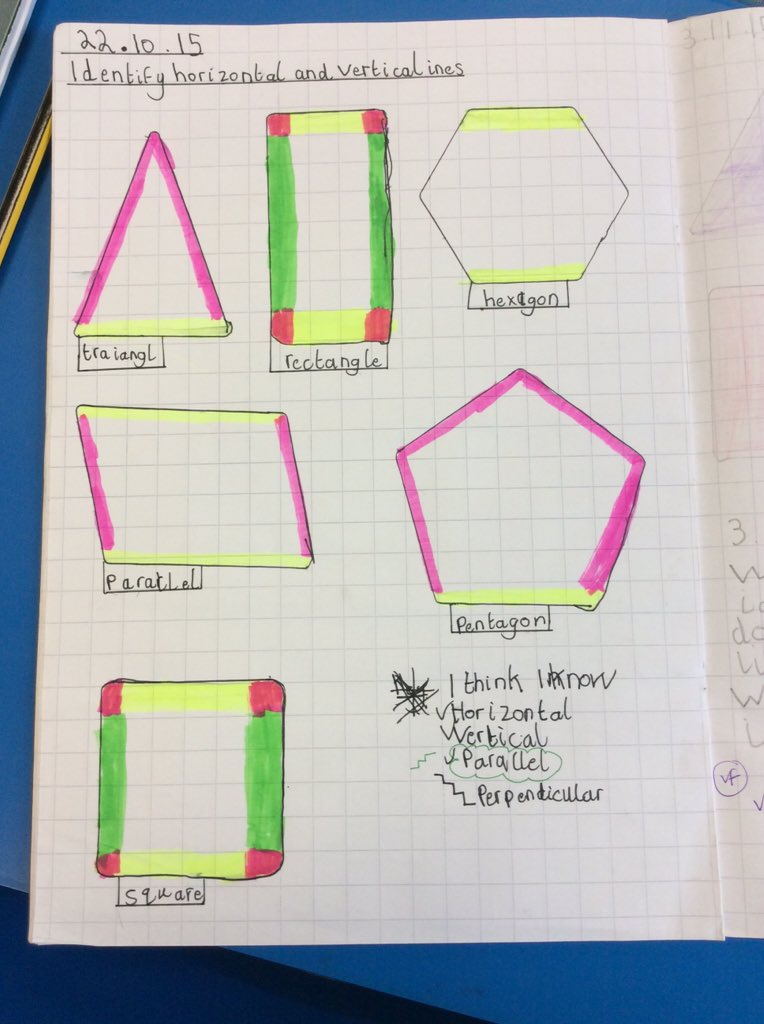 22.10.15
Identify horizontal and vertical lines
traiangl
rectangle
hexagon
Parallel
Pentagon
square
I think I know
Horizontal
Vertical
Parallel
Perpendicular
3.11.1
3.
vf